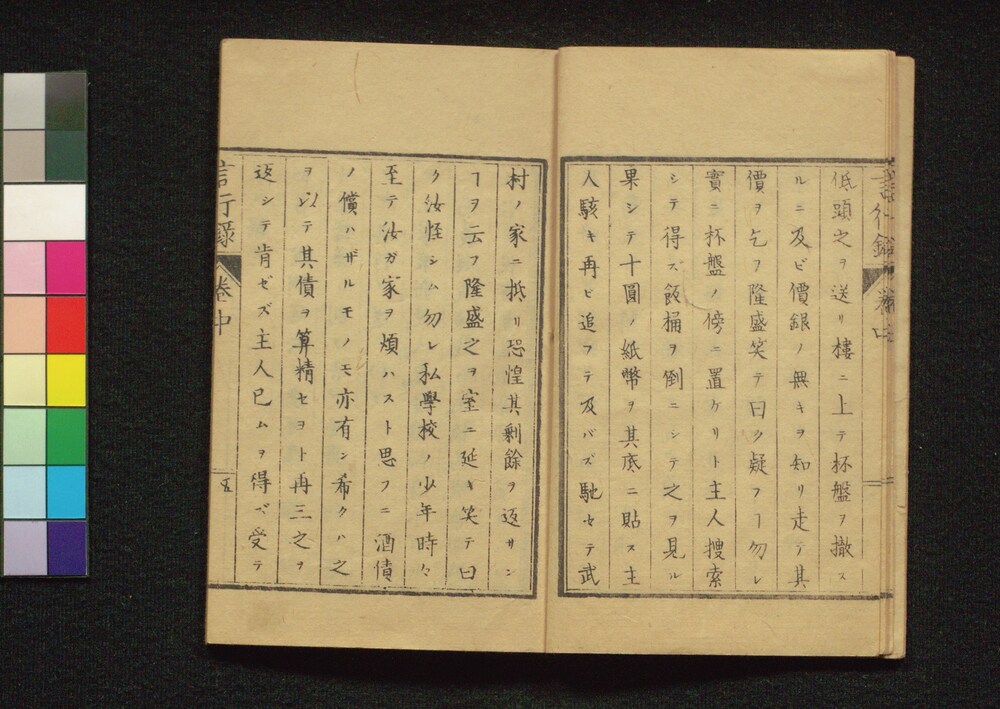 低頭之ヲ送リ樓ニ上テ杯盤ヲ撤ス
ルニ及ビ價銀ノ無キヲ知リ走テ其
價ヲ乞フ隆盛笑テ曰ク疑フヿ勿レ
實ニ杯盤ノ傍ニ置ケリト主人搜索
シテ得ズ飯桶ヲ倒ニシテ之ヲ見ル
果シテ十圓ノ紙幣ヲ其底ニ貼ス主
人駭キ再ビ追フテ及バズ馳セテ武
村ノ家ニ抵リ恐惶其剰餘ヲ返サン
ヿヲ云フ隆盛之ヲ室ニ延キ笑テ曰
ク汝怪シム勿レ私學校ノ少年時々
至テ汝ガ家ヲ煩ハスト思フニ酒債
ノ償ハザルモノモ亦有ン希クハ之
ヲ以テ其債ヲ算精セヨト再三之ヲ
返シテ肯ゼズ主人已ムヲ得ズ受テ
言行録 卷中
五